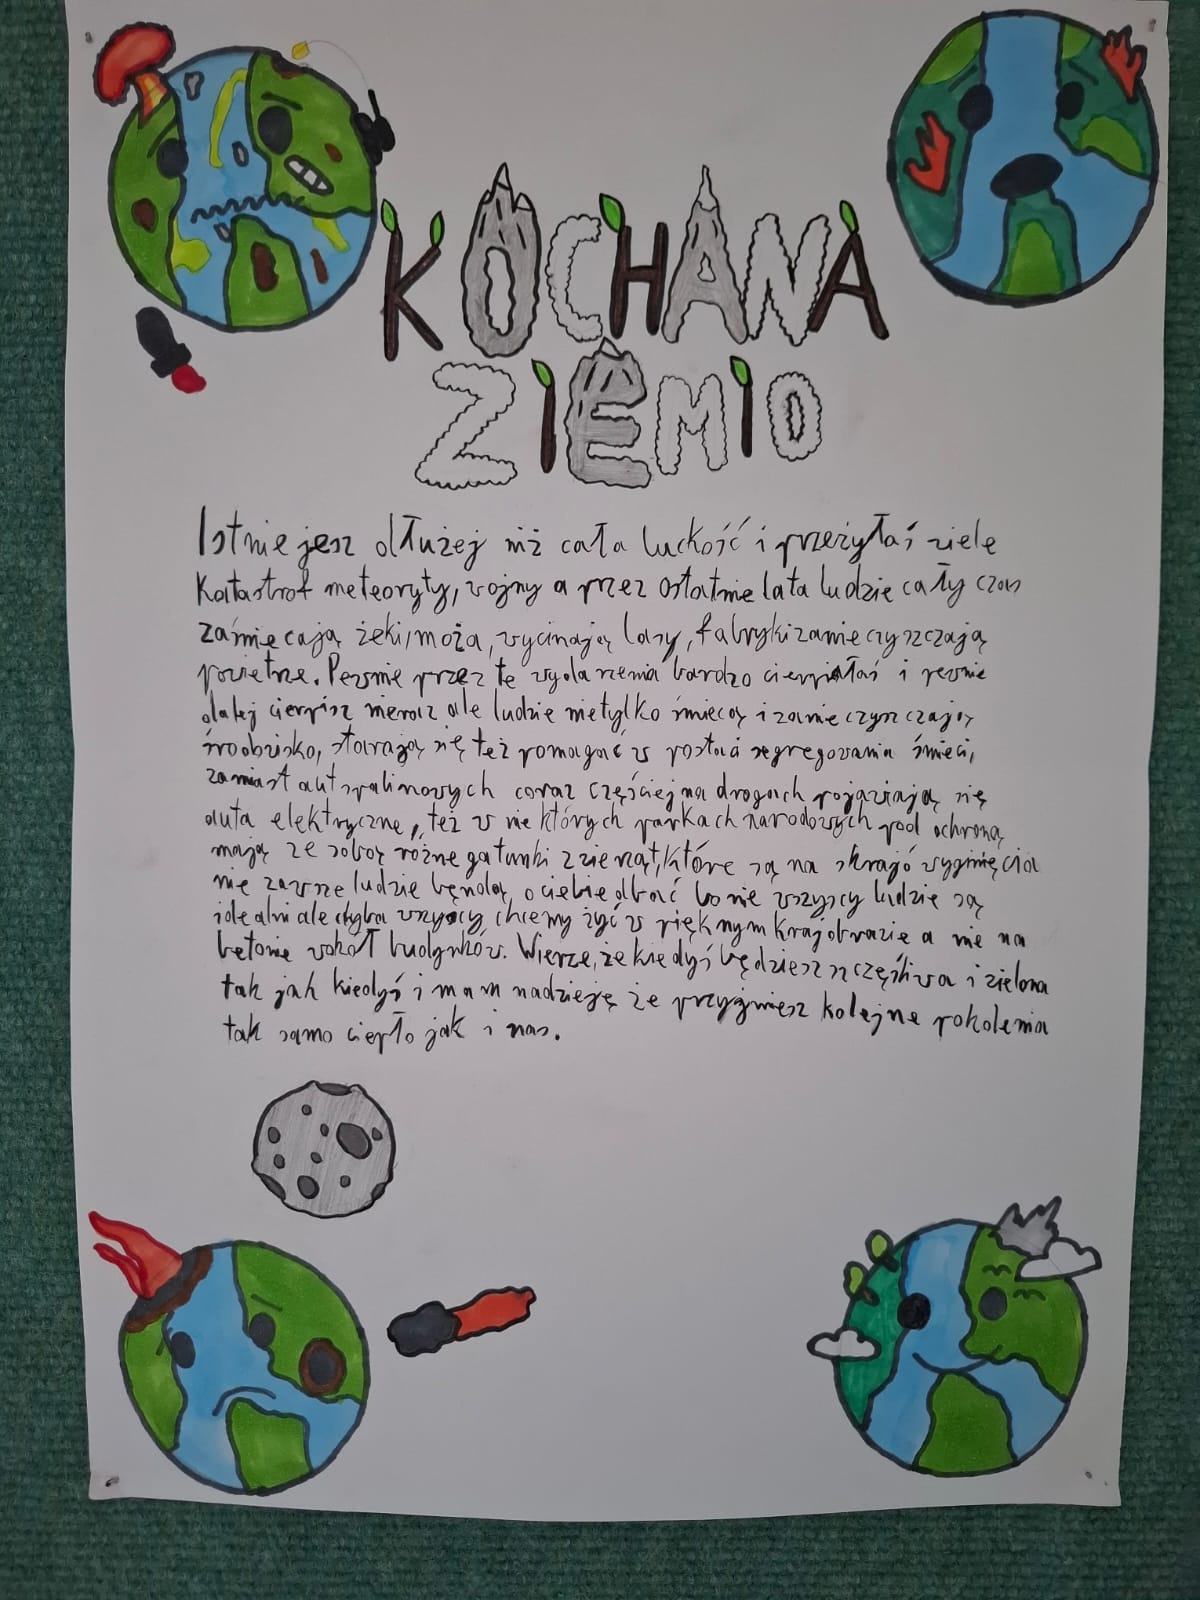 KOCHANA
ZIEMIO
Istniejesz dłużej niż cała luckość i przeżyłaś wiele
katastrof meteoryty, wojny a przez ostatnie lata ludzie cały czas
zaśmiecają żeki, moża, wycinają lasy, fabryki zanieczyszczają
powietrze. Pewnie przez te wydarzenia bardzo cierpiałaś i pewnie
dalej cierpisz nieraz ale ludzie nietylko śmiecą i zanieczyszczają
środowisko, starają się też pomagać w postaci segregowania śmieci,
zamiast aut spalinowych coraz częściej na drogach pojawiają się
auta elektryczne, też w nie których parkach narodowych pod ochroną
mają ze sobą różne gatunki zwierząt, które są na skrajó wyginięcia
nie zawsze ludzie będą o ciebie dbać bo nie wszyscy ludzie są
idealni ale chyba wszyscy chcemy żyć w pięknym krajobrazie a nie na
betonie wokół budynków. Wierze, że kiedyś będziesz szczęśliwa i zielona
tak jak kiedyś i mam nadzieję że przyjmiesz kolejne pokolenia
tak samo ciepło jak i nas.